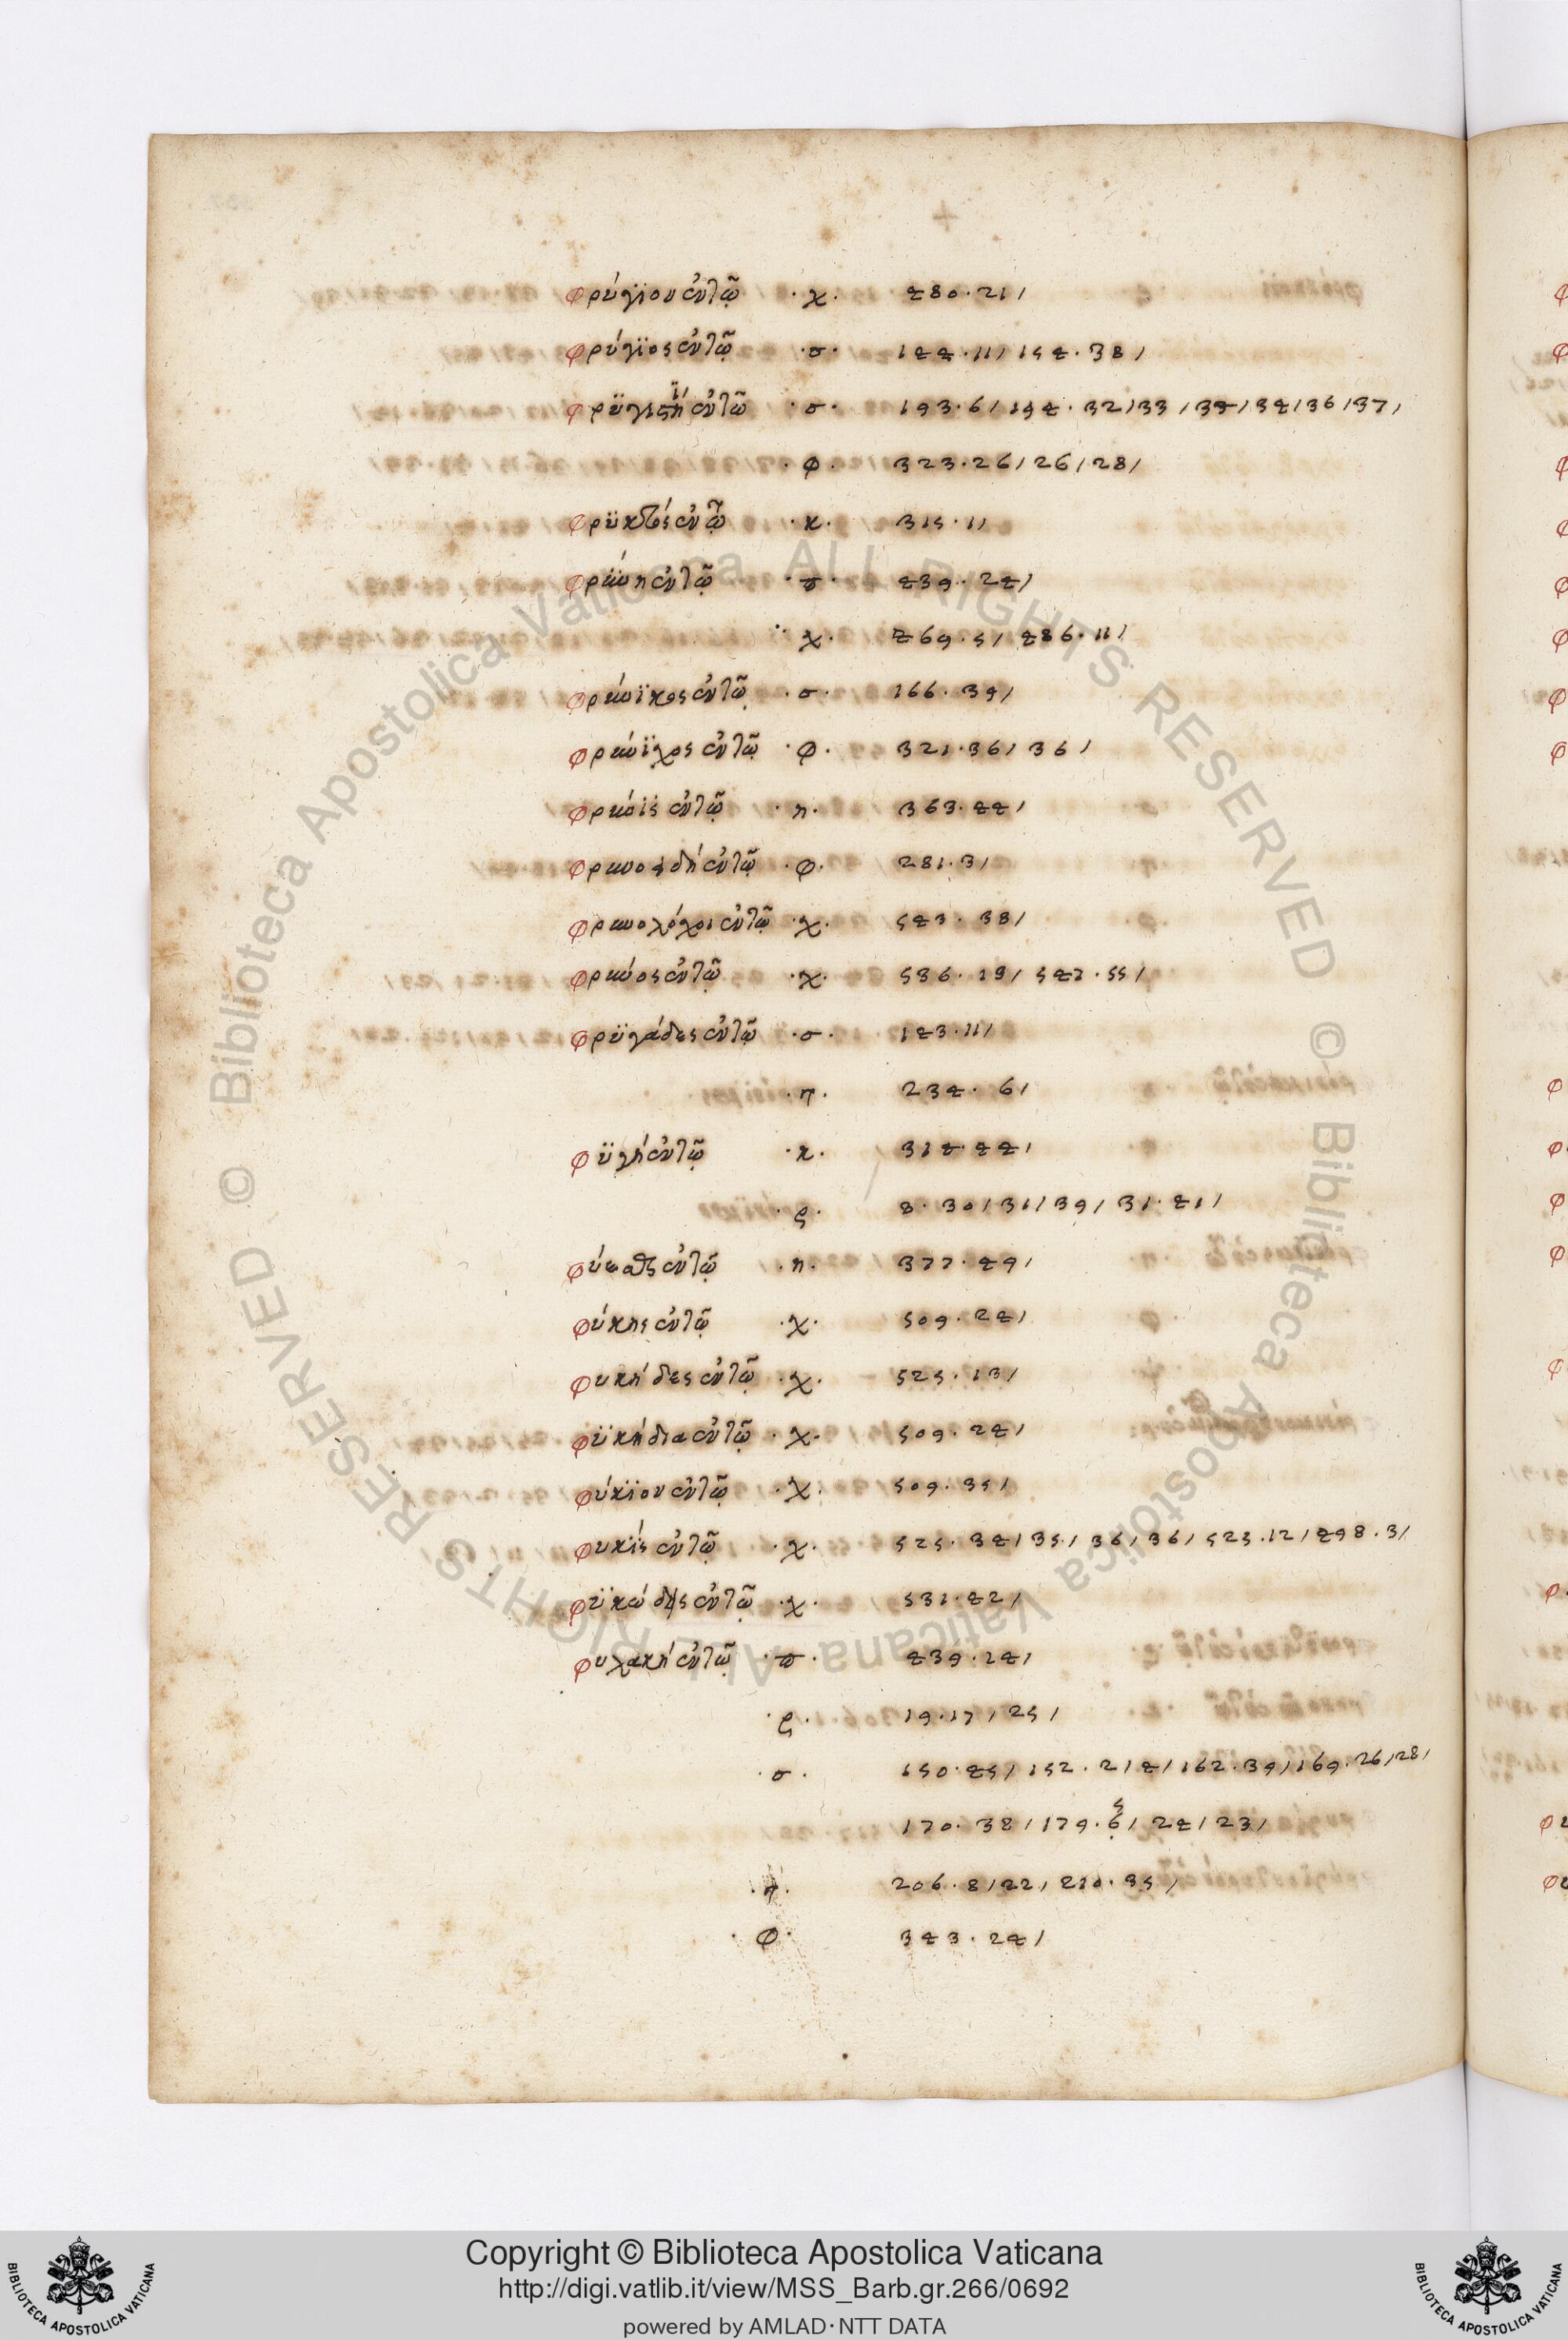 φρύγϊον ἐν τῷ · χ · 480 · 21 /
φρύγϊος ἐν τῷ · σ · 144 · 11 / 154 · 38 /
φρϋγιστῒ ἐν τῷ · σ · 193 · 6 / 194 · 32 / 33 / 34 / 36 / 37 /
· φ · 323 · 26 / 26 / 28 /
φρϋκτὸς ἐν τῷ · κ · 315 · 1 /
φρύνη ἐν τῷ · π · 439 · 24 /
· χ · 469 · 5 / 486 · 11 /
φρύνϊκος ἐν τῷ · σ · 166 · 39 /
φρύνϊχος ἐν τῷ · φ · 321 · 36 / 36 /
ἐν τῷ · η · 363 · 44 /
ἐν τῷ · φ · 281 · 3 /
φρυνολόγοι ἐν τῷ · χ · 543 · 38 /
φρύνος ἐν τῷ · χ · 536 · 13 / 542 · 55 /
φρϋγάδες ἐν τῷ · σ · 143 · 11 /
· τ · 234 · 6 /
φϋγή ἐν τῷ · κ · 314 · 44 /
· ς · 8 · 30 / 31 / 39 / 31 · 41 /
ἐν τῷ · η · 377 · 49 /
φύκης ἐν τῷ · χ · 509 · 24 /
φυκήδες ἐν τῷ · χ · 525 · 13 /
φϋκήδια ἐν τῷ · χ · 509 · 24 /
φύκϊον ἐν τῷ · χ · 509 · 35 /
φυκΐς ἐν τῷ · χ · 525 · 34 / 35 / 36 / 36 / 523 · 12 / 498 · 3 /
φϋκώδης ἐν τῷ · χ · 531 · 42 /
φυλακή ἐν τῷ · π · 439 · 24 /
· ς · 19 · 17 / 25 /
· σ · 150 · 45 / 152 · 2 / 4 / 162 · 39 / 169 · 26 / 28 /
170 · 38 / 179 · 6 / 24 / 23 /
· τ · 206 · 8 / 22 / 210 · 35 /
· φ · 343 · 24 /
Copyright © Biblioteca Apostolica Vaticana
http://digi.vatlib.it/view/MSS_Barb.gr.266/0692
powered by AMLAD·NTT DATA
© Biblioteca Apostolica Vaticana ALL RIGHTS RESERVED
© Biblioteca Apostolica Vaticana ALL RIGHTS RESERVED
BIBLIOTECA APOSTOLICA VATICANA
BIBLIOTECA APOSTOLICA VATICANA